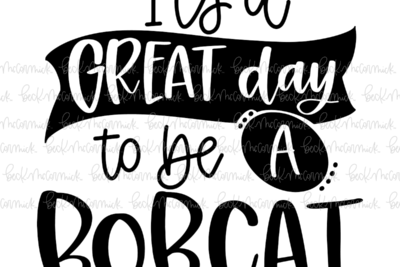 It's a
GREAT day
to be A
BOBCAT